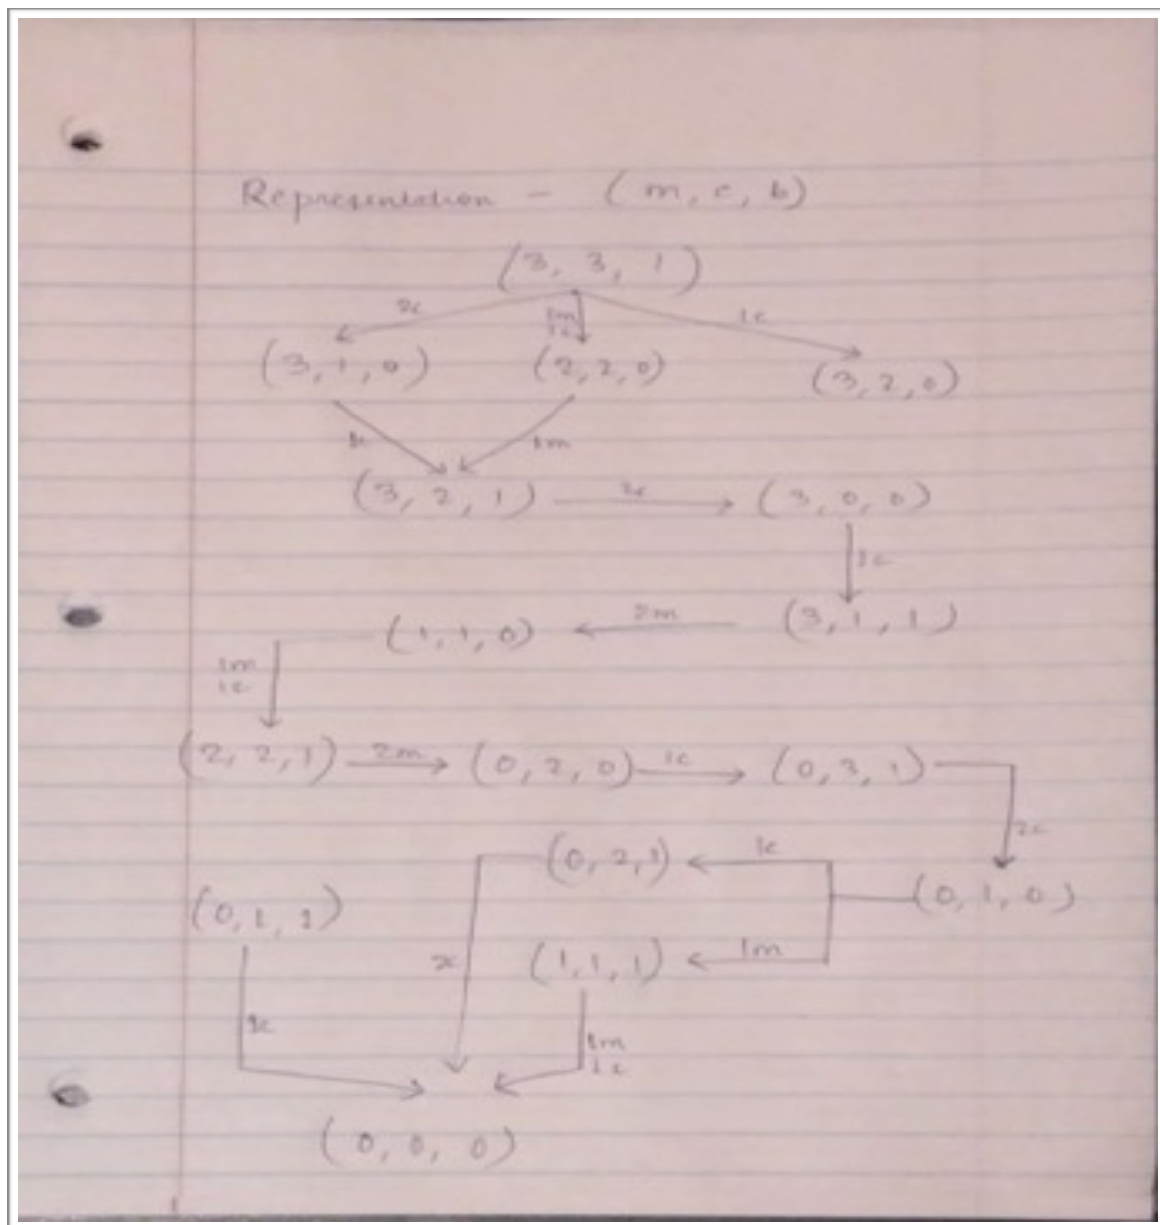 Representation - (m, c, b)
(3, 3, 1)
2c 1m 1c 1c
(3, 1, 0) (2, 2, 0) (3, 2, 0)
1c 1m
(3, 2, 1) 2c (3, 0, 0)
1c
(1, 1, 0) 2m (3, 1, 1)
1m
1c
(2, 2, 1) 2m (0, 2, 0) 1c (0, 3, 1)
2c
(0, 2, 1) 1c (0, 1, 0)
(0, 1, 1)
2c (1, 1, 1) 1m
1c 1m
1c
(0, 0, 0)